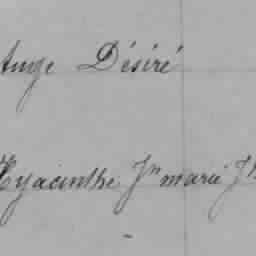 Ange Désiré
Hyacinthe Jn marie Jh